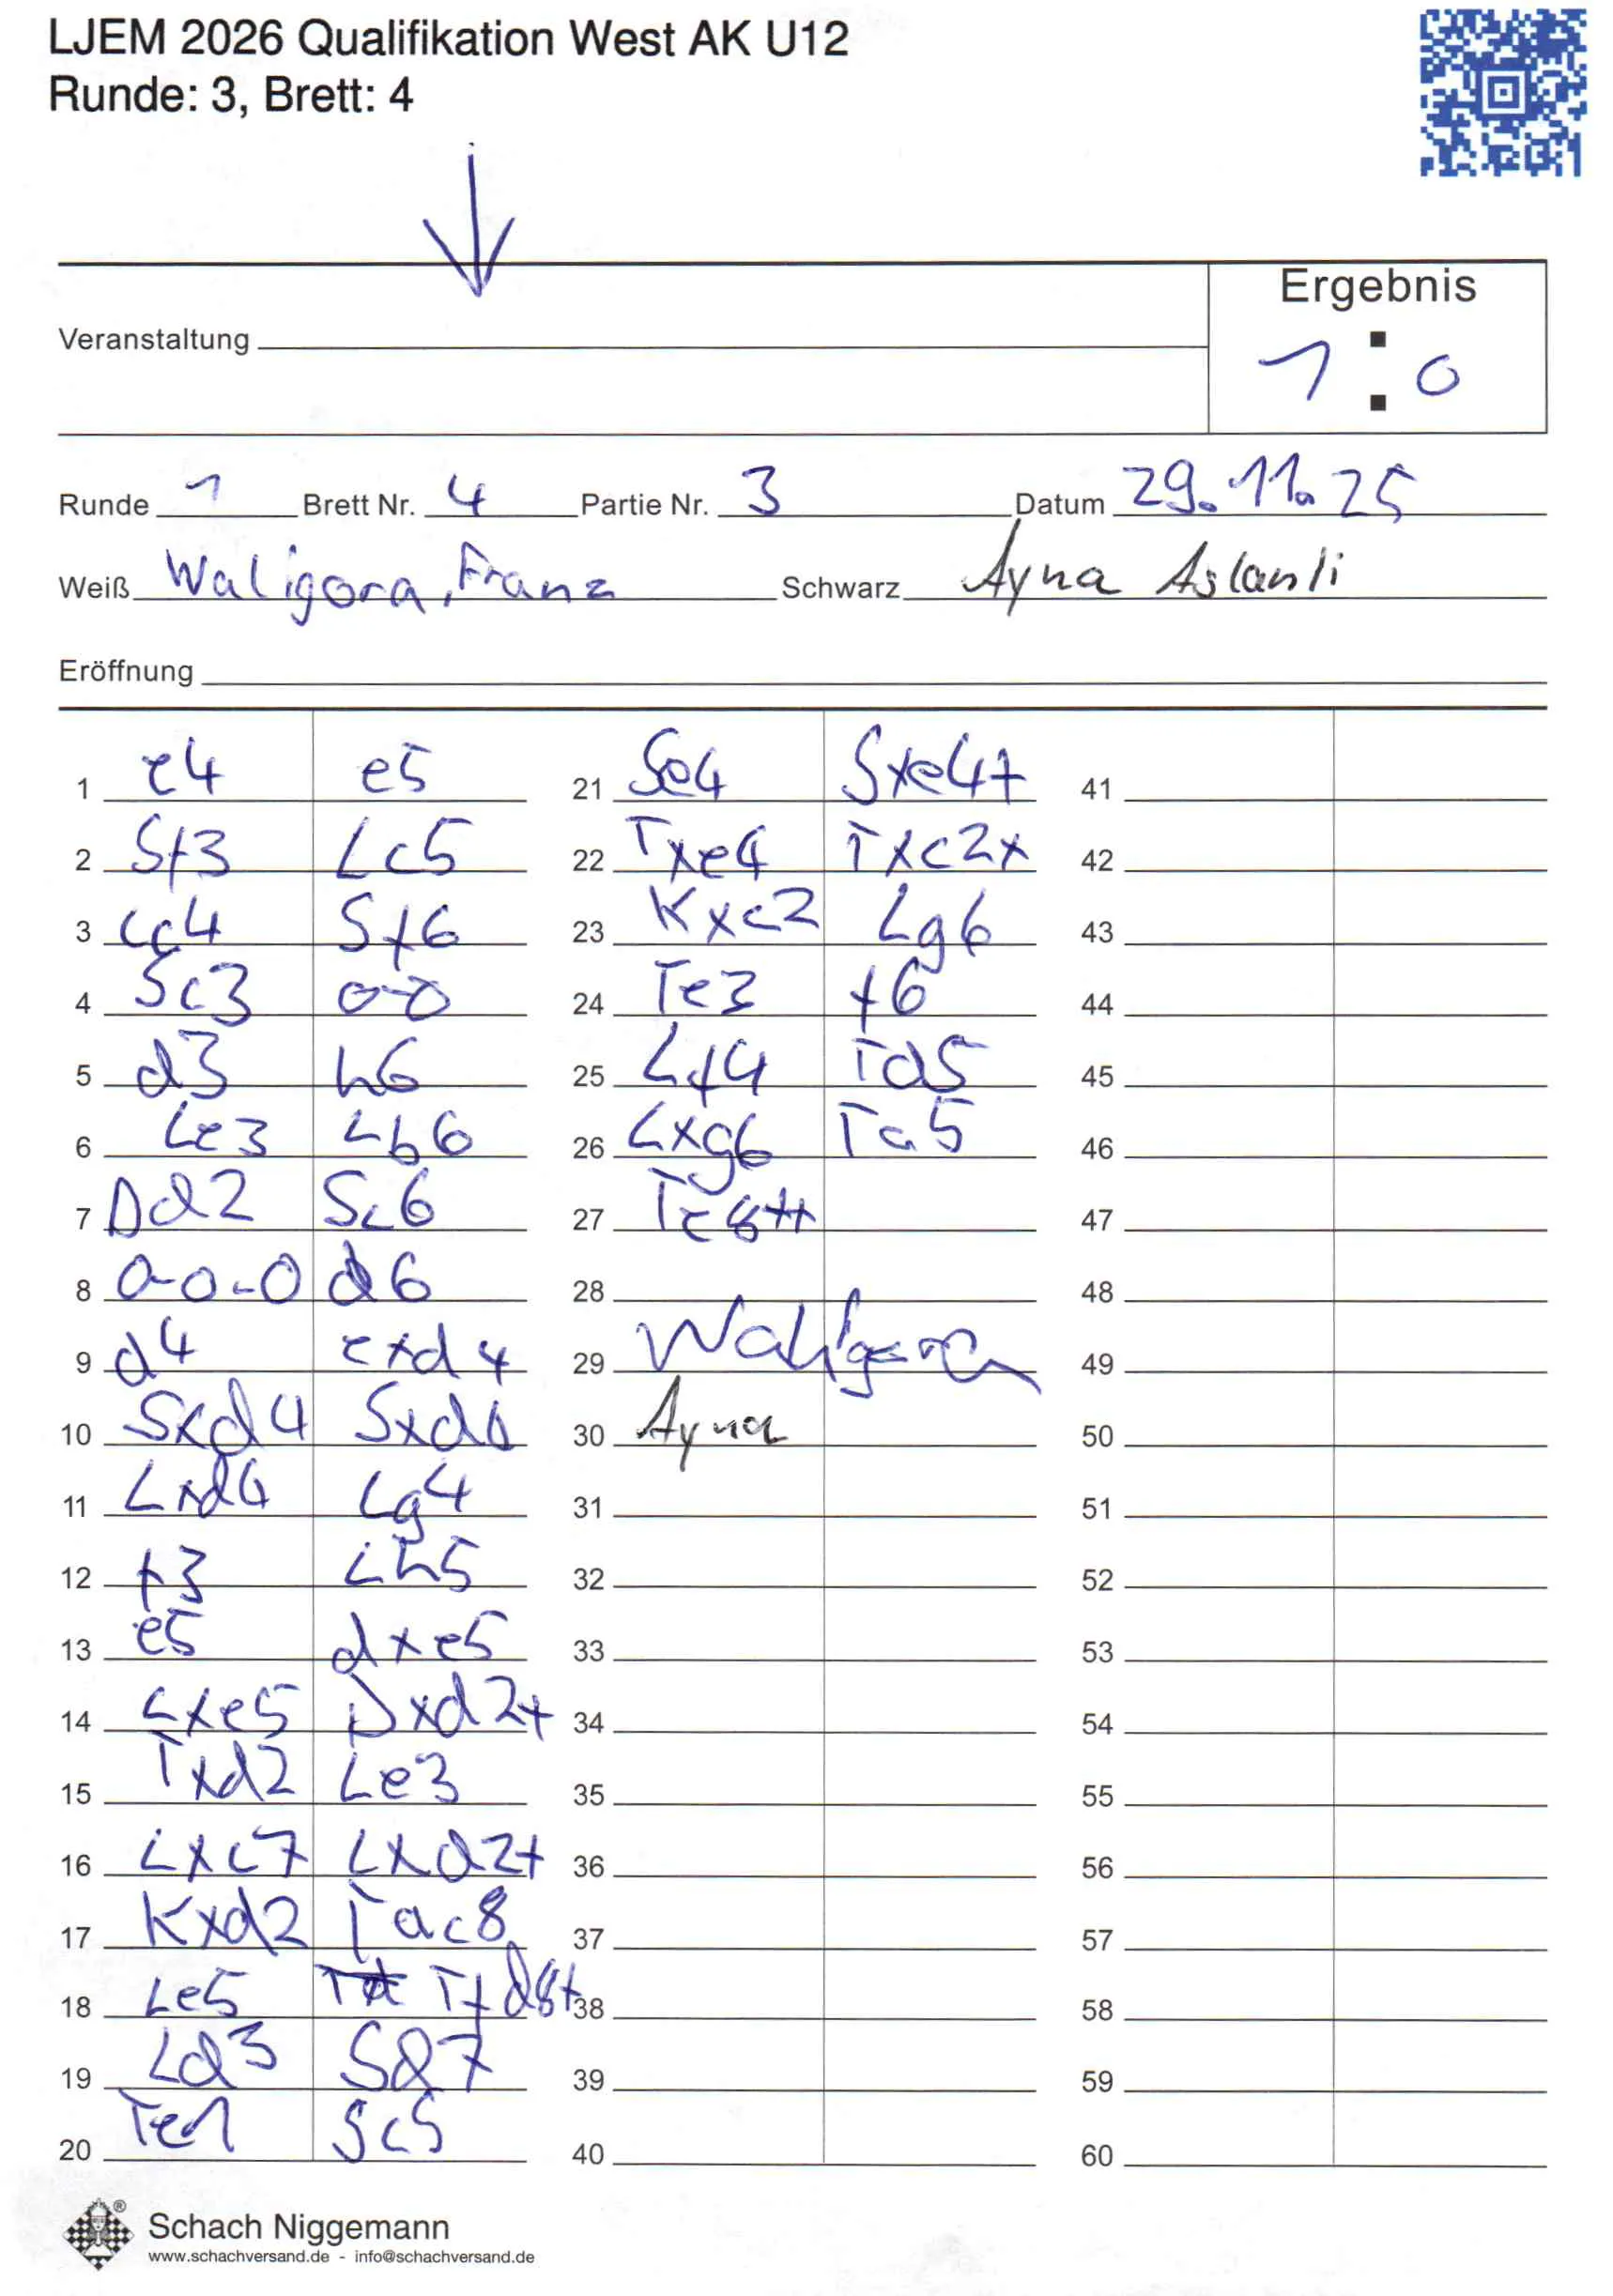 LJEM 2026 Qualifikation West AK U12
Runde: 3, Brett: 4
Ergebnis
Veranstaltung
1 : 0
Runde 1 Brett Nr. 4 Partie Nr. 3 Datum 29.11.25
Weiß Waligora, Franz Schwarz Ayna Aslanli
Eröffnung
1 e4 e5
2 Sf3 Lc5
3 Lc4 Sf6
4 Sc3 0-0
5 d3 h6
6 Le3 Lb6
7 Dd2 Sc6
8 0-0-0 d6
9 d4 exd4
10 Sxd4 Sxd4
11 Lxd4 Lg4
12 f3 Lh5
13 e5 dxe5
14 Lxe5 Dxd2+
15 Txd2 Le3
16 Lxc7 Lxd2+
17 Kxd2 Tac8
18 Le5 Tfd8+
19 Ld3 Sd7
20 Te1 Sc5
21 Se4 Sxe4+
22 Txe4 Txc2x
23 Kxc2 Lg6
24 Te3 f6
25 Lf4 Td5
26 Lxg6 Ta5
27 Te8++
28
29 Waligora
30 Ayna
31
32
33
34
35
36
37
38
39
40
41
42
43
44
45
46
47
48
49
50
51
52
53
54
55
56
57
58
59
60
Schach Niggemann
www.schachversand.de - info@schachversand.de